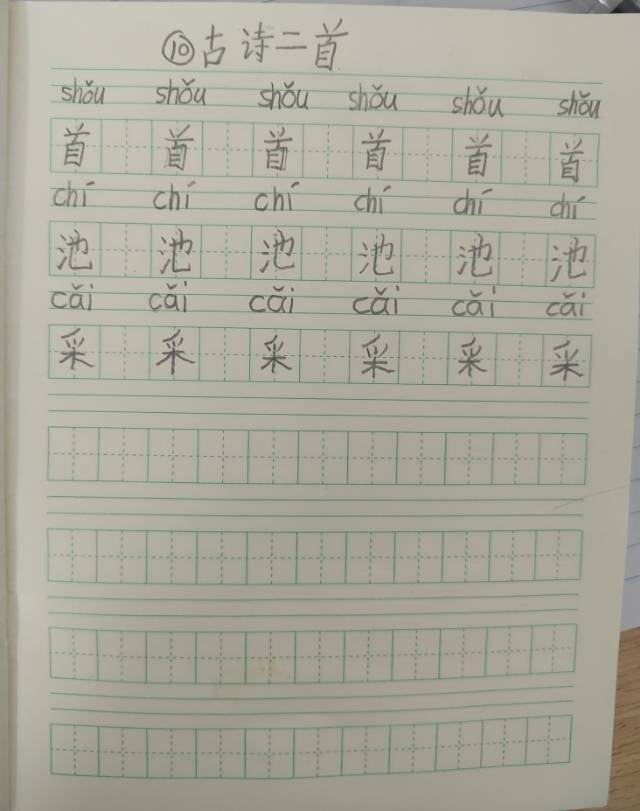 ⑩古诗二首
shǒu shǒu shǒu shǒu shǒu shǒu
首 首 首 首 首 首
chí chí chí chí chí chí
池 池 池 池 池 池
cǎi cǎi cǎi cǎi cǎi cǎi
采 采 采 采 采 采